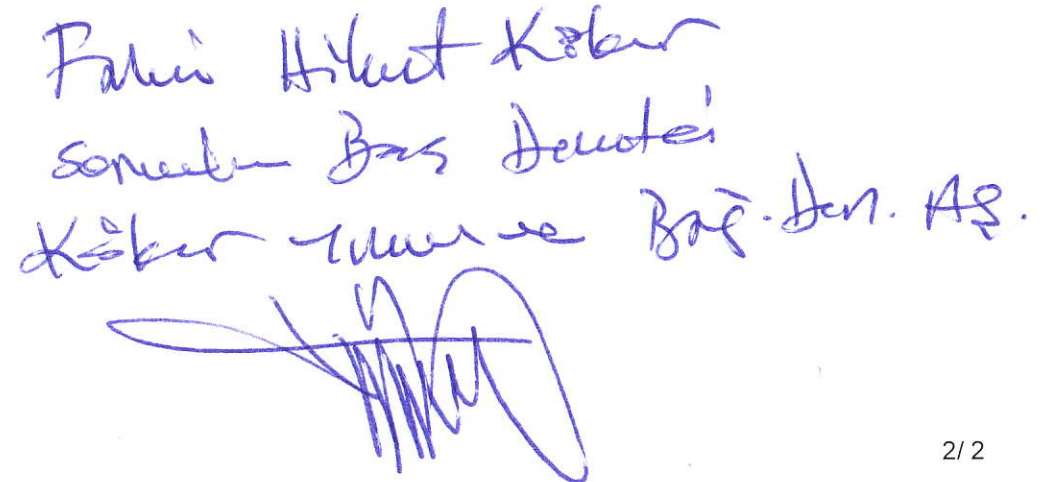 Fahri Hikmet Köker
Sorumlu Baş Denetçi
Köker YMM ve Bağ. Den. AŞ.
2/ 2